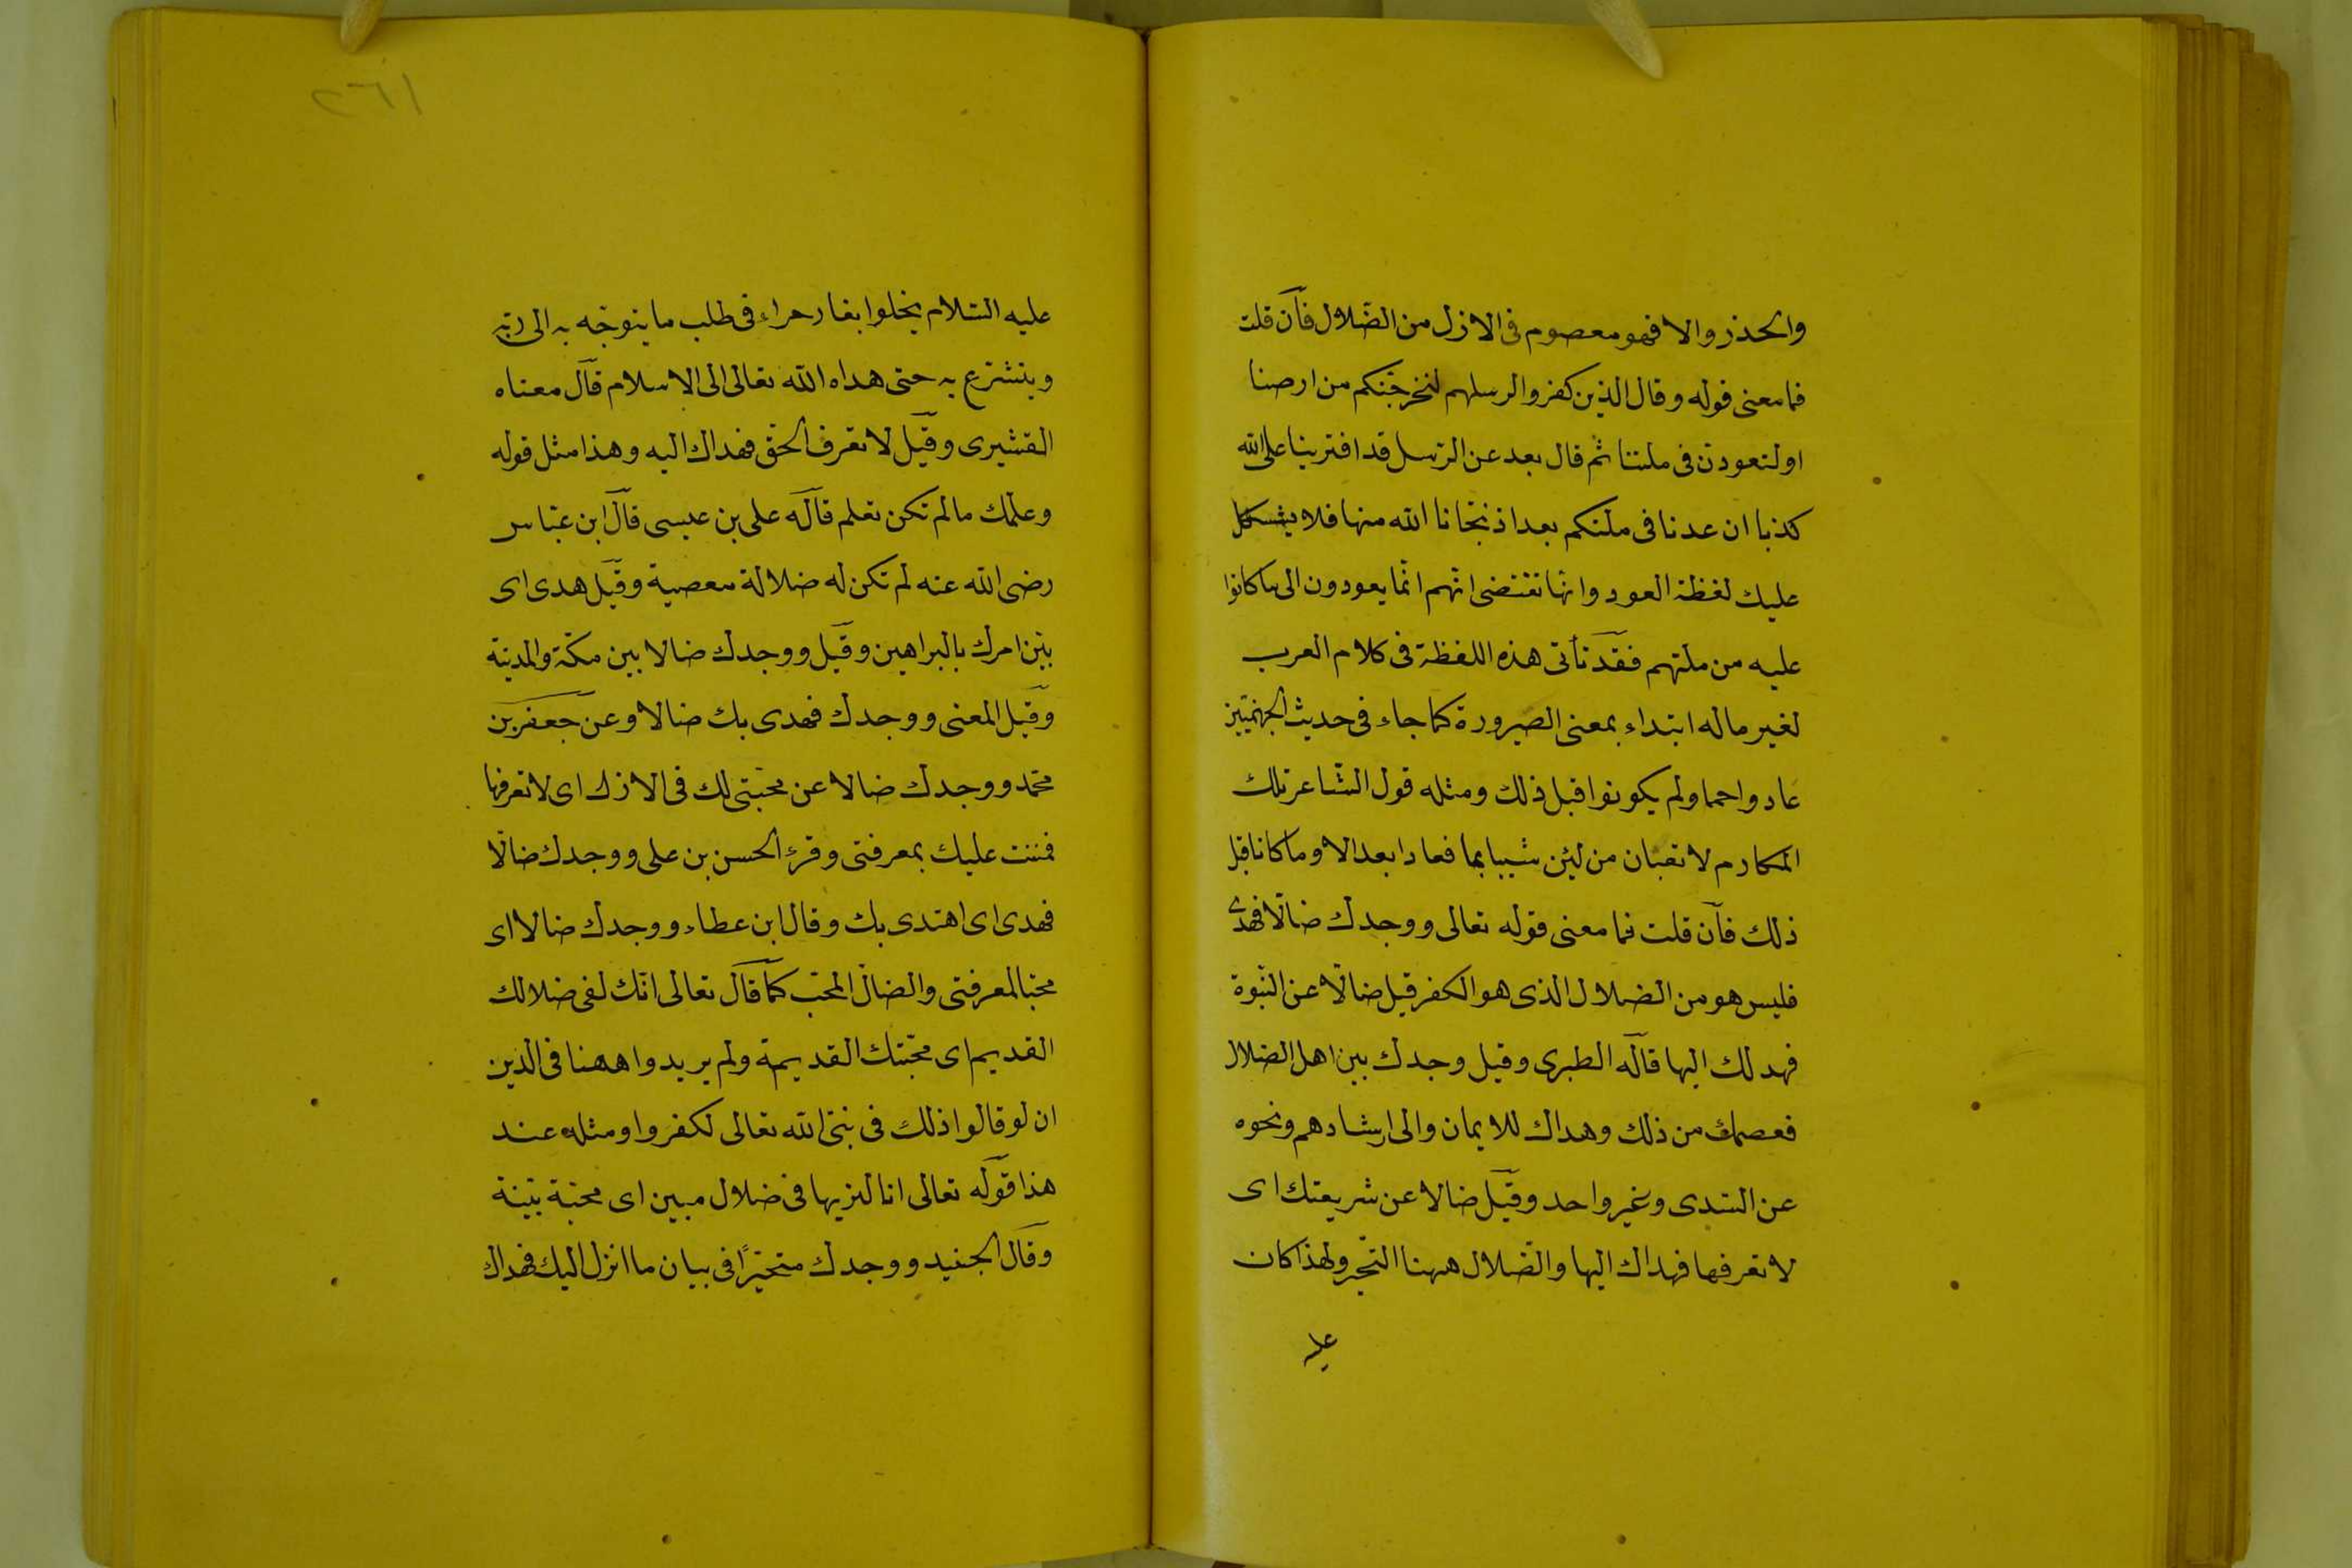 والحذر والا فهو معصوم فى الازل من الضلال فآن قلت
فما معنى قوله وقال الذين كفروا لرسلهم لنخرجنكم من ارضنا
او لتعودن فى ملتنا ثم قال بعد عن الرسل قد افترينا على الله
كذبا ان عدنا فى ملتكم بعد اذ نجانا الله منها فلا يشكل
عليك لفظة العود وانها تقتضى انهم انما يعودون الى ما كانوا
عليه من ملتهم فقد تأتى هذه اللفظة فى كلام العرب
لغير ما له ابتداء بمعنى الصيرورة كما جاء فى حديث الجهنميين
عادوا حمما ولم يكونوا قبل ذلك ومثله قول الشاعر تلك
المكارم لا تعبان من لبن شيبا بما فعادا بعد الا وما كانا قبل
ذلك فآن قلت فما معنى قوله تعالى ووجدك ضالا فهدى
فليس هو من الضلال الذى هو الكفر قيل ضالا عن النبوة
فهد لك اليها قاله الطبرى وقيل وجدك بين اهل الضلال
فعصمك من ذلك وهداك للايمان والى ارشادهم ونحوه
عن السدى وغير واحد وقيل ضالا عن شريعتك اى
لا تعرفها فهداك اليها والضلال ههنا التحير ولهذا كان
عليه
٢٦١
عليه السلام يخلوا بغار حراء فى طلب ما يتوجه به الى ربه
ويتشرع به حتى هداه الله تعالى الى الاسلام قال معناه
القشيرى وقيل لا تعرف الحق فهداك اليه وهذا مثل قوله
وعلمك مالم تكن تعلم قاله على بن عيسى قال ابن عباس
رضى الله عنه لم تكن له ضلالة معصية وقيل هدى اى
بين امرك بالبراهين وقيل ووجدك ضالا بين مكة والمدينة
وقيل المعنى ووجدك فهدى بك ضالا وعن جعفر بن
محمد ووجدك ضالا عن محبتى لك فى الازل اى لا تعرفها
فمننت عليك بمعرفتى وقرء الحسن بن على ووجدك ضالا
فهدى اى اهتدى بك وقال ابن عطاء ووجدك ضالا اى
محبا لمعرفتى والضال المحب كما قال تعالى انك لفى ضلالك
القديم اى محبتك القديمة ولم يريدوا ههنا فى الدين
ان لو قالوا ذلك فى نبى الله تعالى لكفروا ومثله عند
هذا قوله تعالى انا لنريها فى ضلال مبين اى محبة بينة
وقال الجنيد ووجدك متحيرًا فى بيان ما انزل اليك فهداك